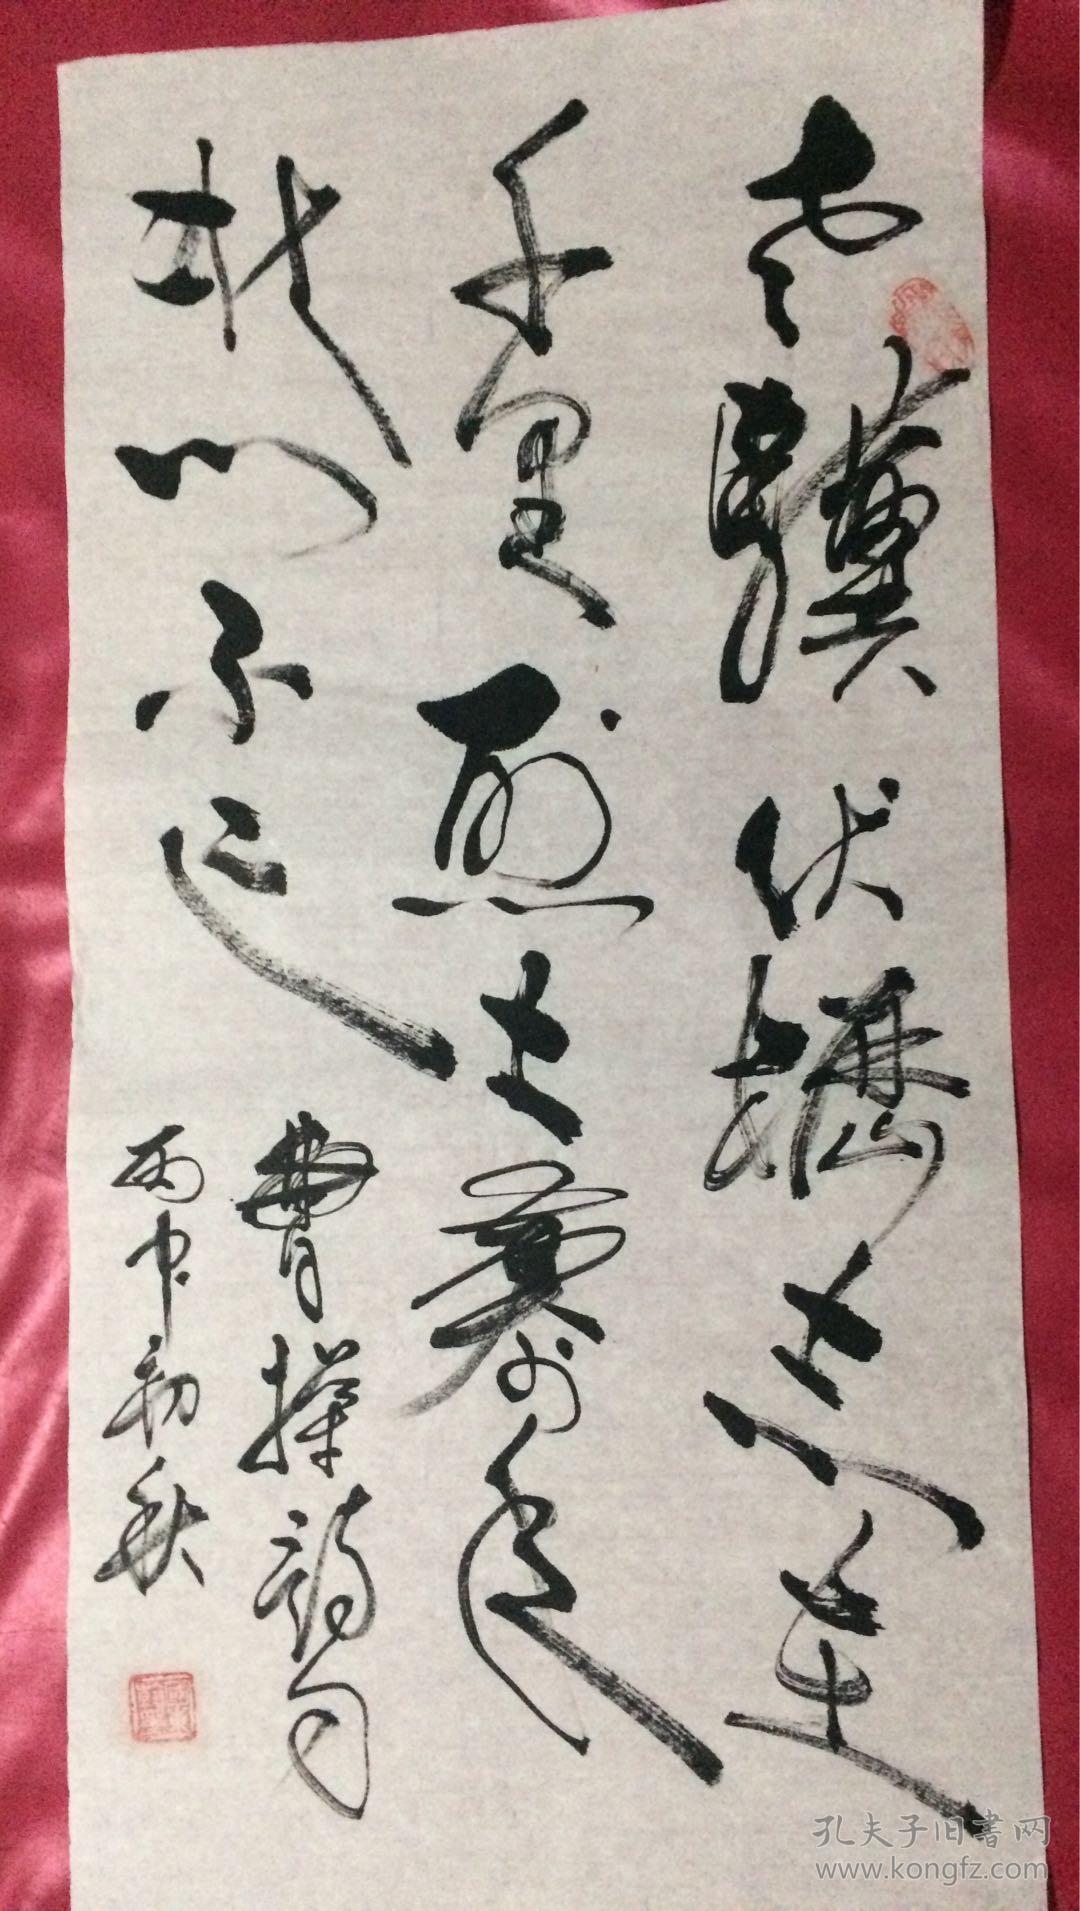 老驥伏櫪志在
千里烈士暮年
壯心不已
曹操詩句
丙申初秋
孔夫子旧書网
www.kongfz.com